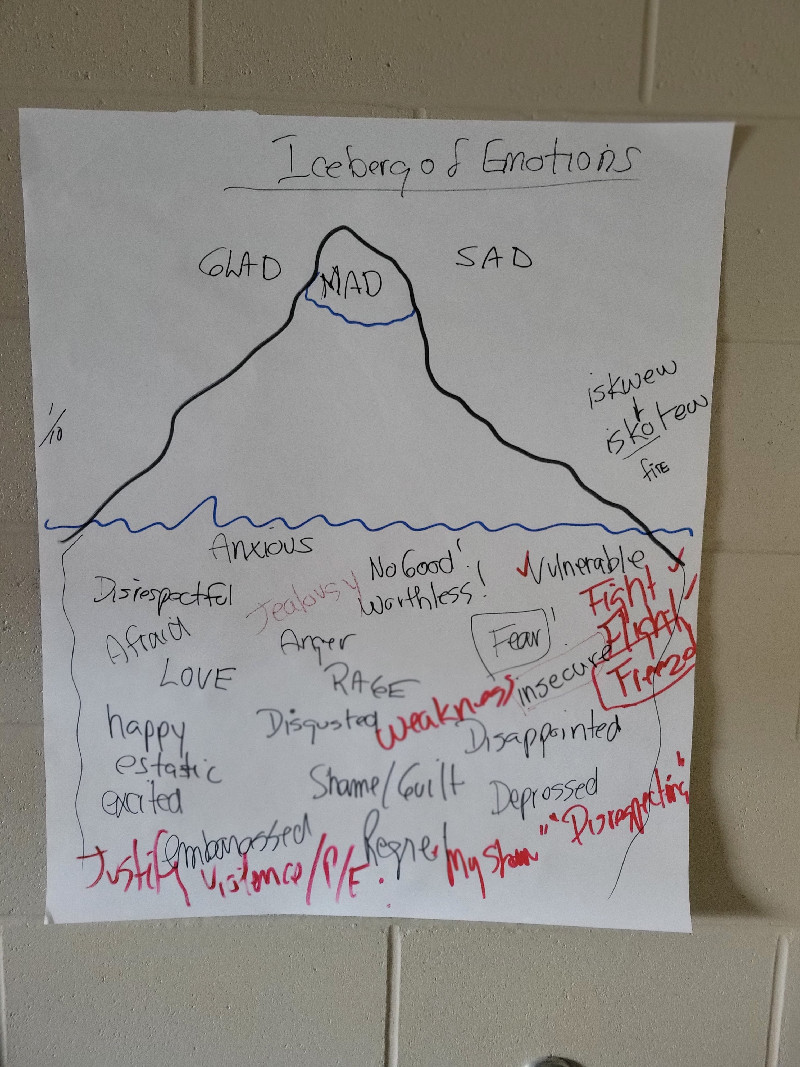 Iceberg of Emotions
GLAD
MAD
SAD
1/10
iskwew
iskotew
fire
Anxious
Disrespectful
Jealousy
No Good!
Worthless!
Vulnerable
Fight
Flight
Freeze
Afraid
Anger
Fear
LOVE
RAGE
Weakness
insecure
happy
Disgusted
Disappointed
estatic
excited
Shame/Guilt
Depressed
embarrassed
Regret
My
"Disrespecting"
Justify violence/P/E.